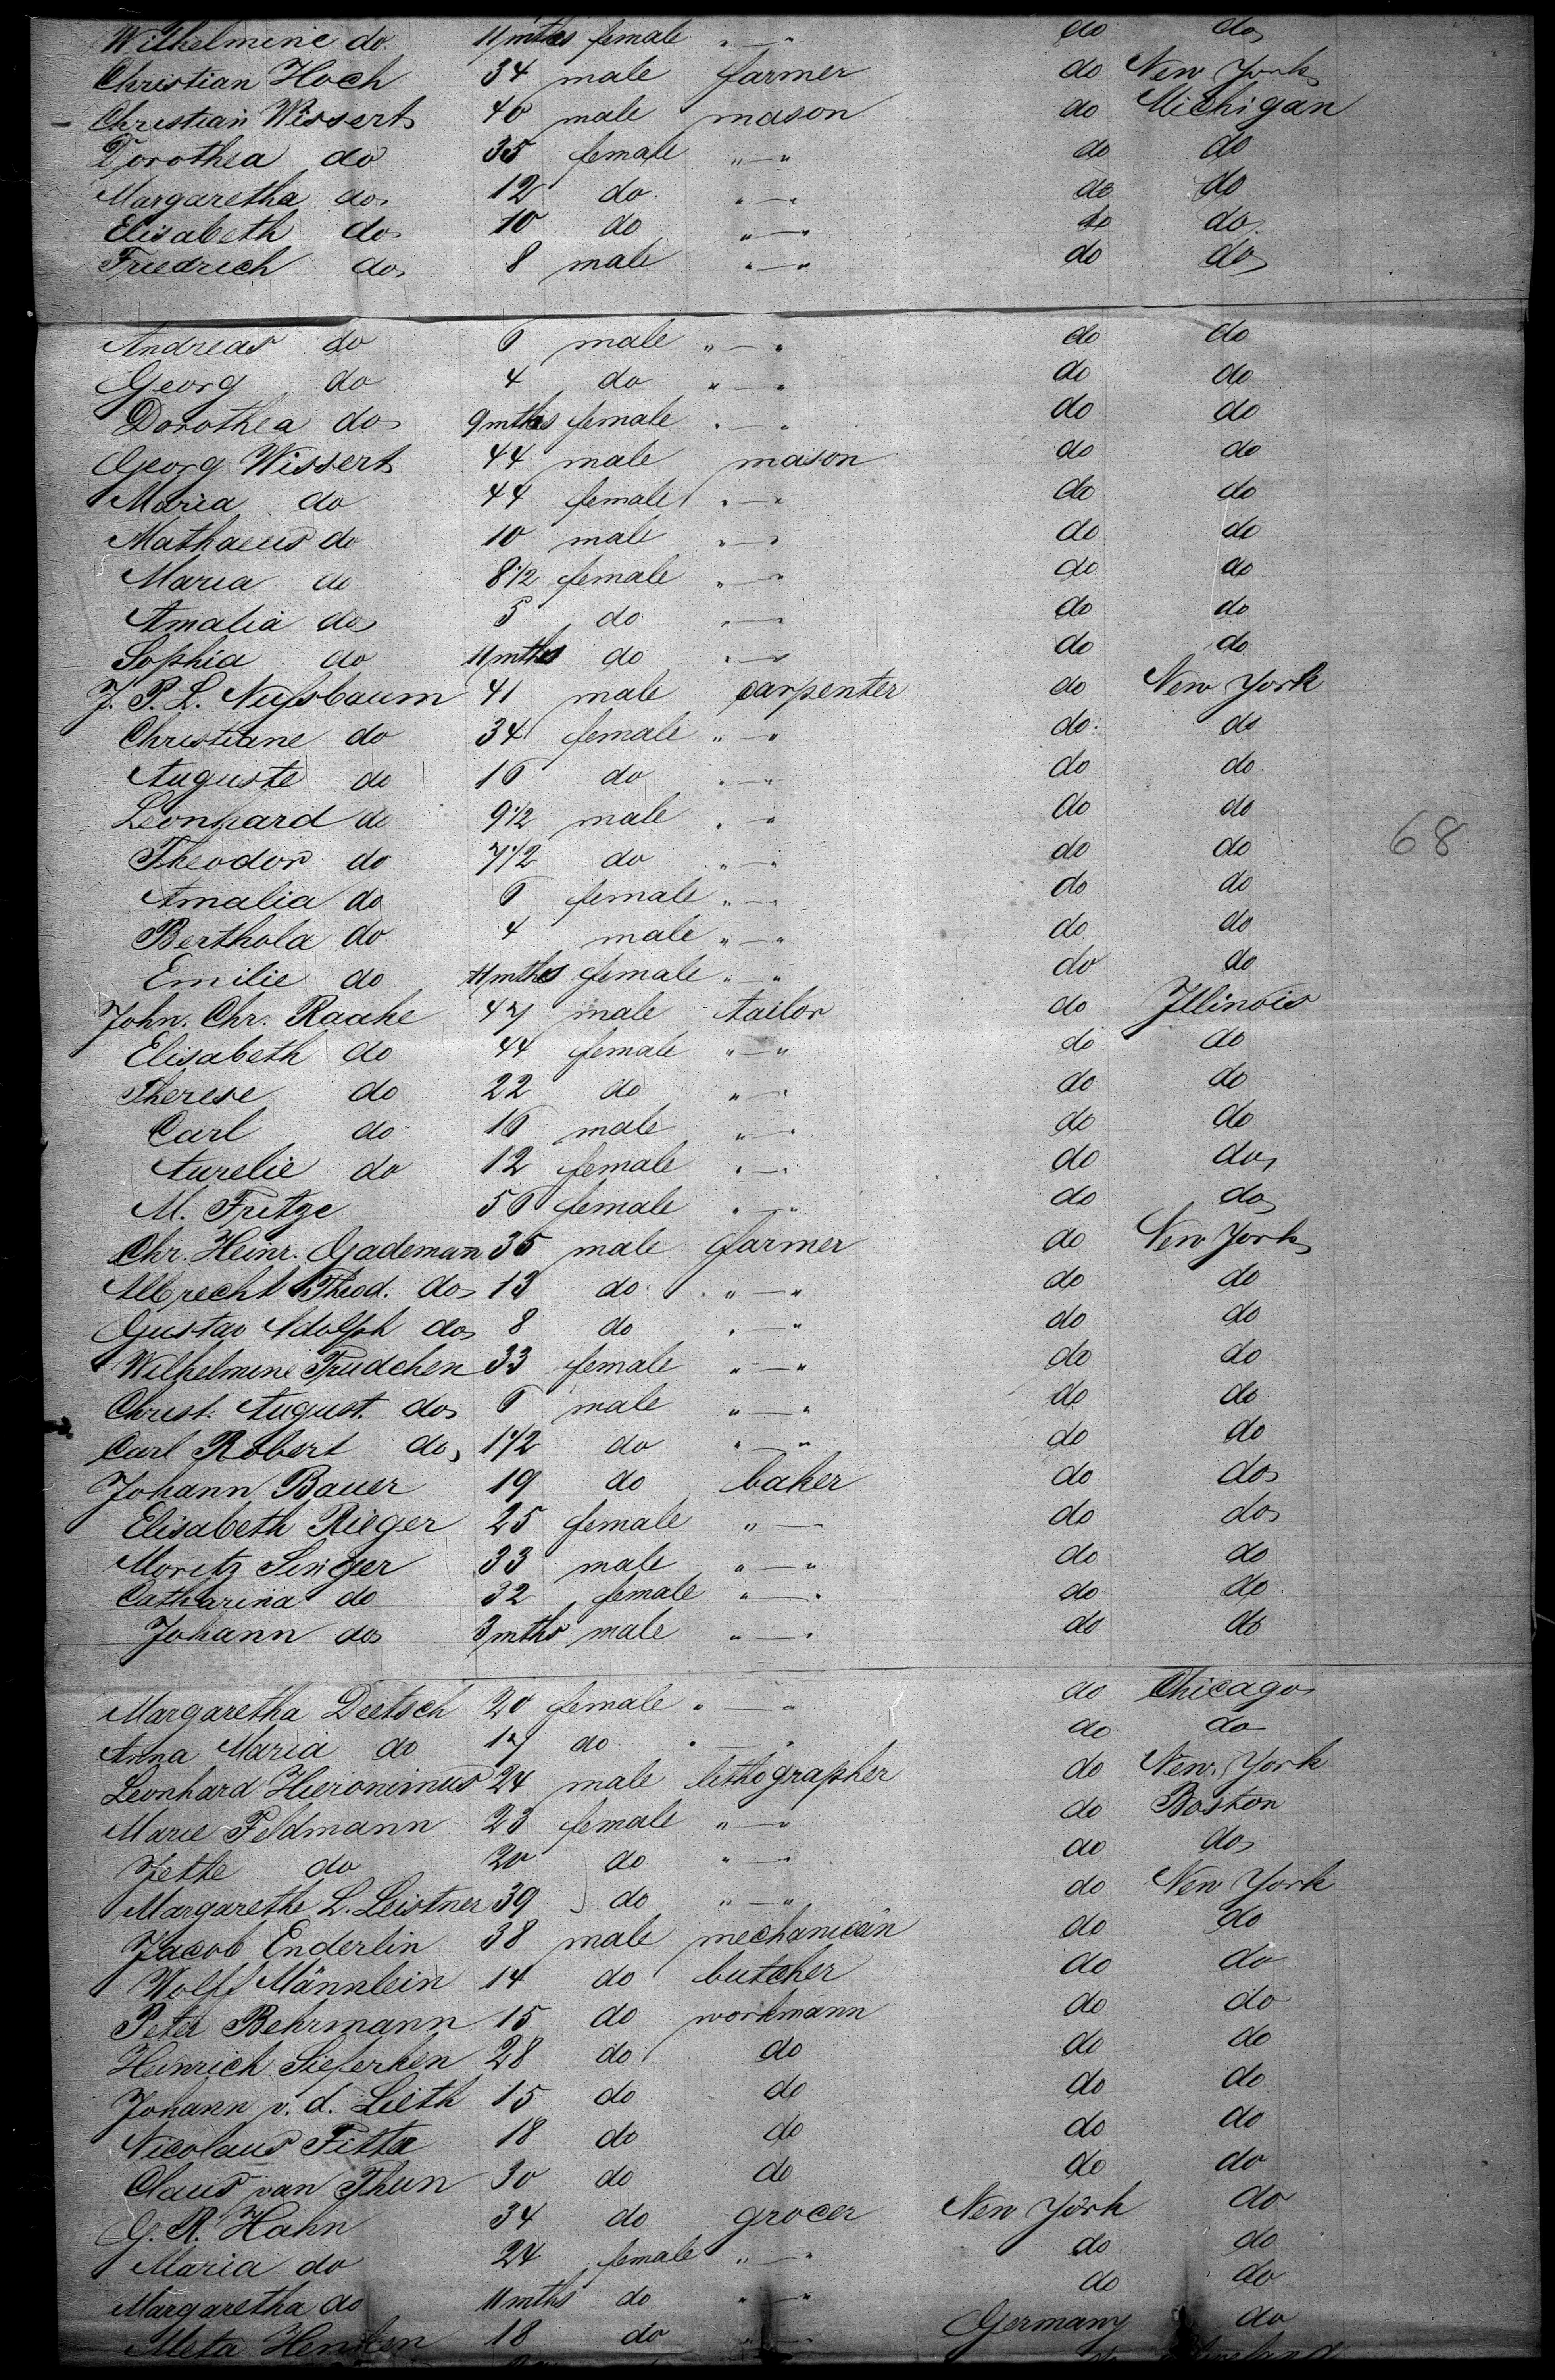 Wilhelmine do. 11 mths female " — " do do
Christian Hoch 34 male farmer do New York
Christian Wissert 40 male mason do Michigan
Dorothea do 35 female " — " do do
Margaretha do 12 do " — " do do
Elisabeth do 10 do " — " do do
Friedrich do 8 male " — " do do
Andreas do 6 male " — " do do
Georg do 4 do " — " do do
Dorothea do 9 mths female " — " do do
Georg Wissert 44 male mason do do
Maria do 44 female " — " do do
Mathaeus do 10 male " — " do do
Maria do 8 1/2 female " — " do do
Amalia do 5 do " — " do do
Sophia do 11 mths do " — " do do
J. P. L. Nußbaum 41 male carpenter do New York
Christiane do 34 female " — " do do
Auguste do 16 do " — " do do
Leonhard do 9 1/2 male " — " do do
Theodor do 7 1/2 do " — " do do 68
Amalia do 6 female " — " do do
Berthola do 4 male " — " do do
Emilie do 11 mths female " — " do do
John. Chr. Raake 47 male tailor do Illinois
Elisabeth do 44 female " — " do do
Therese do 22 do " — " do do
Carl do 16 male " — " do do
Aurelie do 12 female " — " do do
M. Fritze 56 female " — " do do
Chr. Heinr. Gademan 35 male farmer do New York
Albrecht Theod. do 13 do " — " do do
Gustav Adolph do 8 do " — " do do
Wilhelmine Trüdchen 33 female " — " do do
Christ. August. do 6 male " — " do do
Carl Robert do 1 1/2 do " — " do do
Johann Bauer 19 do baker do do
Elisabeth Rieger 25 female " — do do
Moritz Singer 33 male " — " do do
Catharina do 32 female " — " do do
Johann do 3 mths male " — " do do
Margaretha Deetsch 20 female " — " do Chicago
Anna Maria do 17 do " — " do do
Leonhard Hieronimus 24 male lithographer do New York
Marie Feldmann 23 female " — " do Boston
Jette do 20 do " — " do do
Margarethe L. Leistner 39 do " — " do New York
Jacob Enderlin 38 male mechanicän do do
Wolff Männlein 14 do butcher do do
Peter Behrmann 15 do workmann do do
Heinrich Sieferken 28 do do do do
Johann v. d. Lieth 15 do do do do
Nicolaus Fitta 18 do do do do
Claus van Thun 30 do do do do
G. R. Hahn 34 do grocer New York do
Maria do 24 female " — " do do
Margaretha do 11 mths do " — " do do
Meta Henken 18 do " — " Germany do